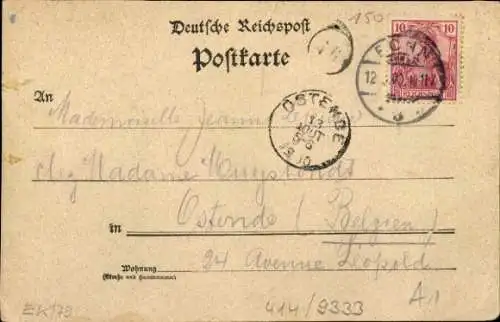 150
Deutsche Reichspost
Postkarte
10 10
12
An Mademoiselle Jeanne
OSTENDE
13
AOUT
chez Madame
in Ostende (Belgien)
Wohnung 24 Avenue Léopold
(Straße und Hausnummer)
EK173
414/9333
A1